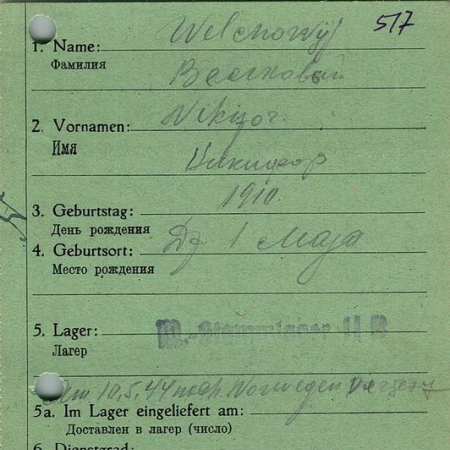 517
1. Name: Welchowyj
Фамилия
2. Vornamen: Nikifor.
Имя Никифор
1910.
3. Geburtstag:
День рождения
4. Geburtsort: 1 Maja
Место рождения
5. Lager: M.-Stammlager II B
Лагер
10.5.44 nach Norwegen
5a. Im Lager eingeliefert am:
Доставлен в лагер (число)
6. Dienstgrad: